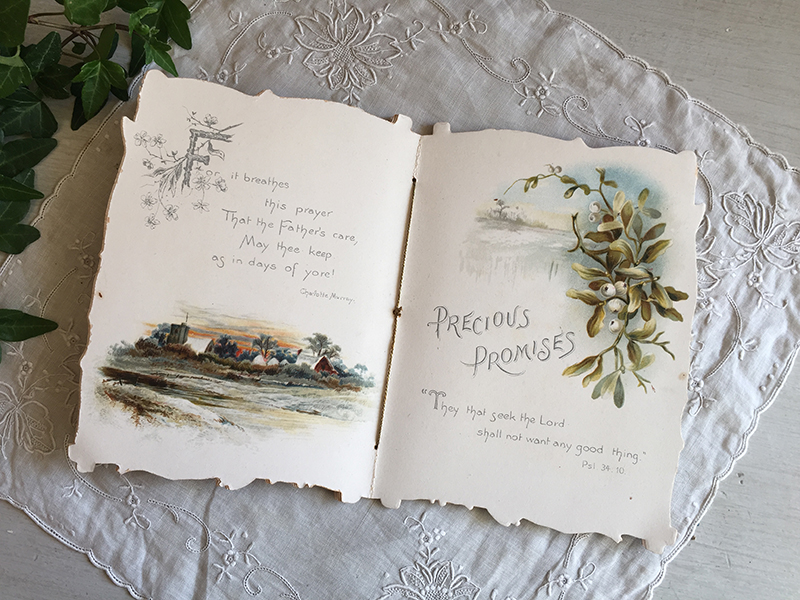 For it breathes
this prayer
That the Father's care,
May thee keep
as in days of yore!
Charlotte Murray.
PRECIOUS
PROMISES
"They that seek the Lord
shall not want any good thing."
Psl 34. 10.